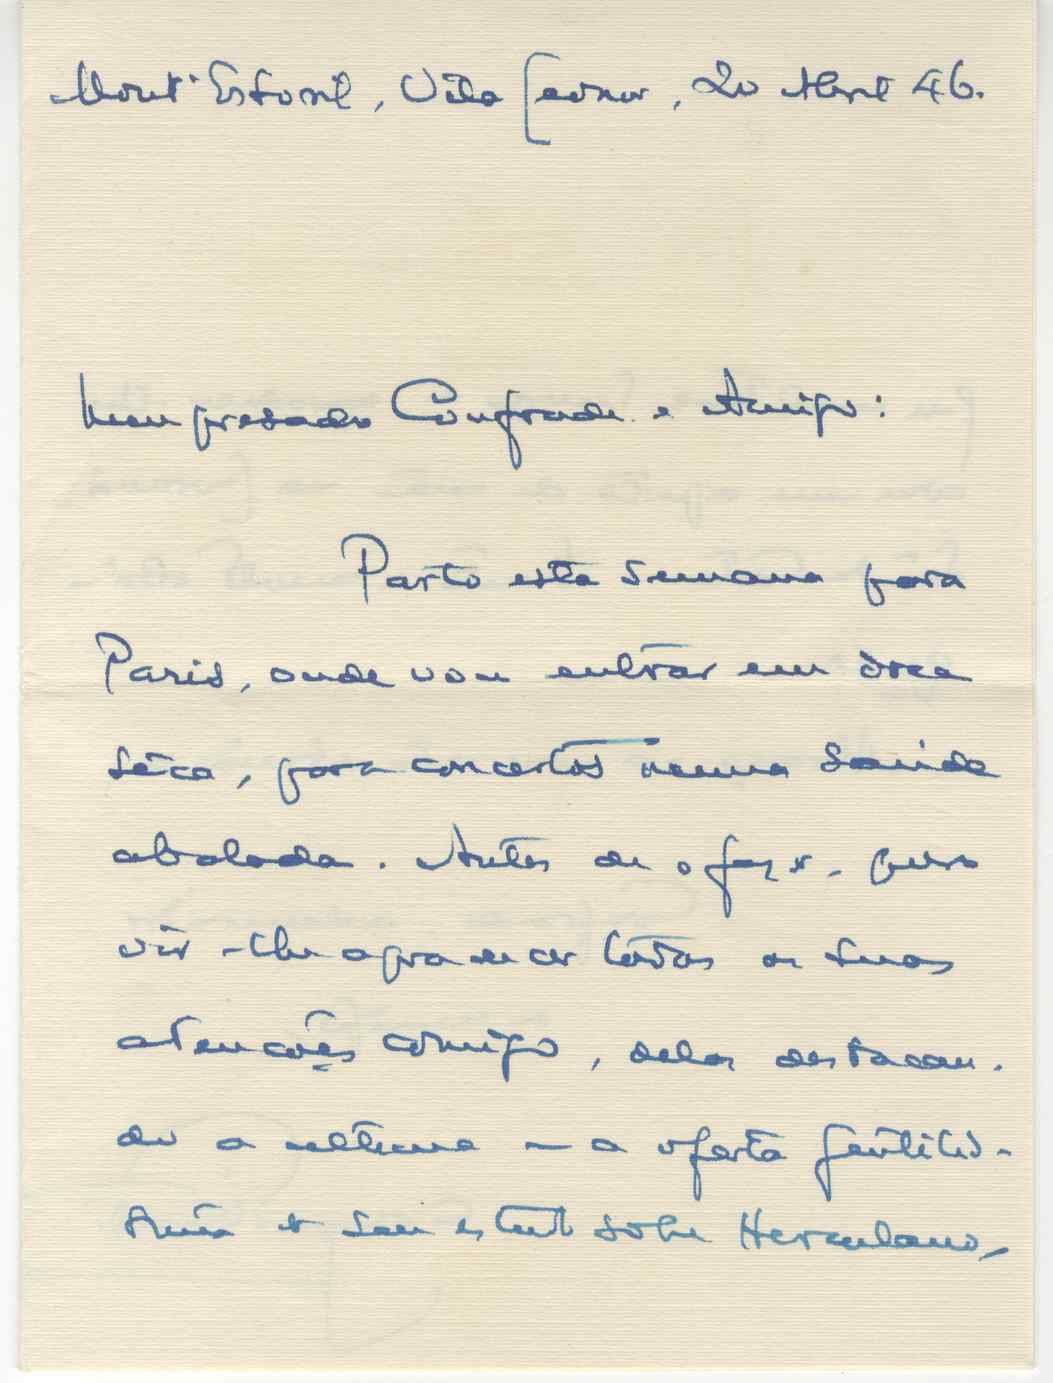 Mont'Estoril, Vila Leonor, 20 Abril 46.
Meu presado Confrade e Amigo:
Parto esta semana para
Paris, onde vou entrar em doca
sêca, para concertos numa saude
abalada. Antes de o fazer, quero
vir-lhe agradecer todas as suas
atenções comigo, delas destacan-
do a ultima — a oferta gentilis-
sima do seu estudo sobre Herculano,